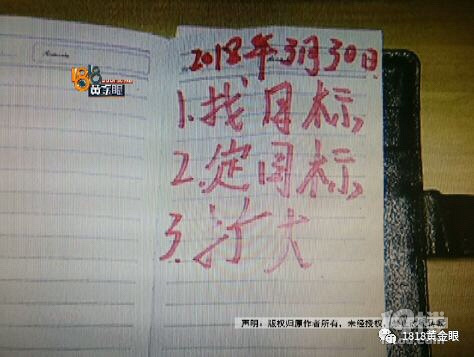 2018年3月30日
1818
黄金眼
1.找目标,
2.定目标,
3.扩大
声明：版权归原作者所有，未经授权
1818黄金眼